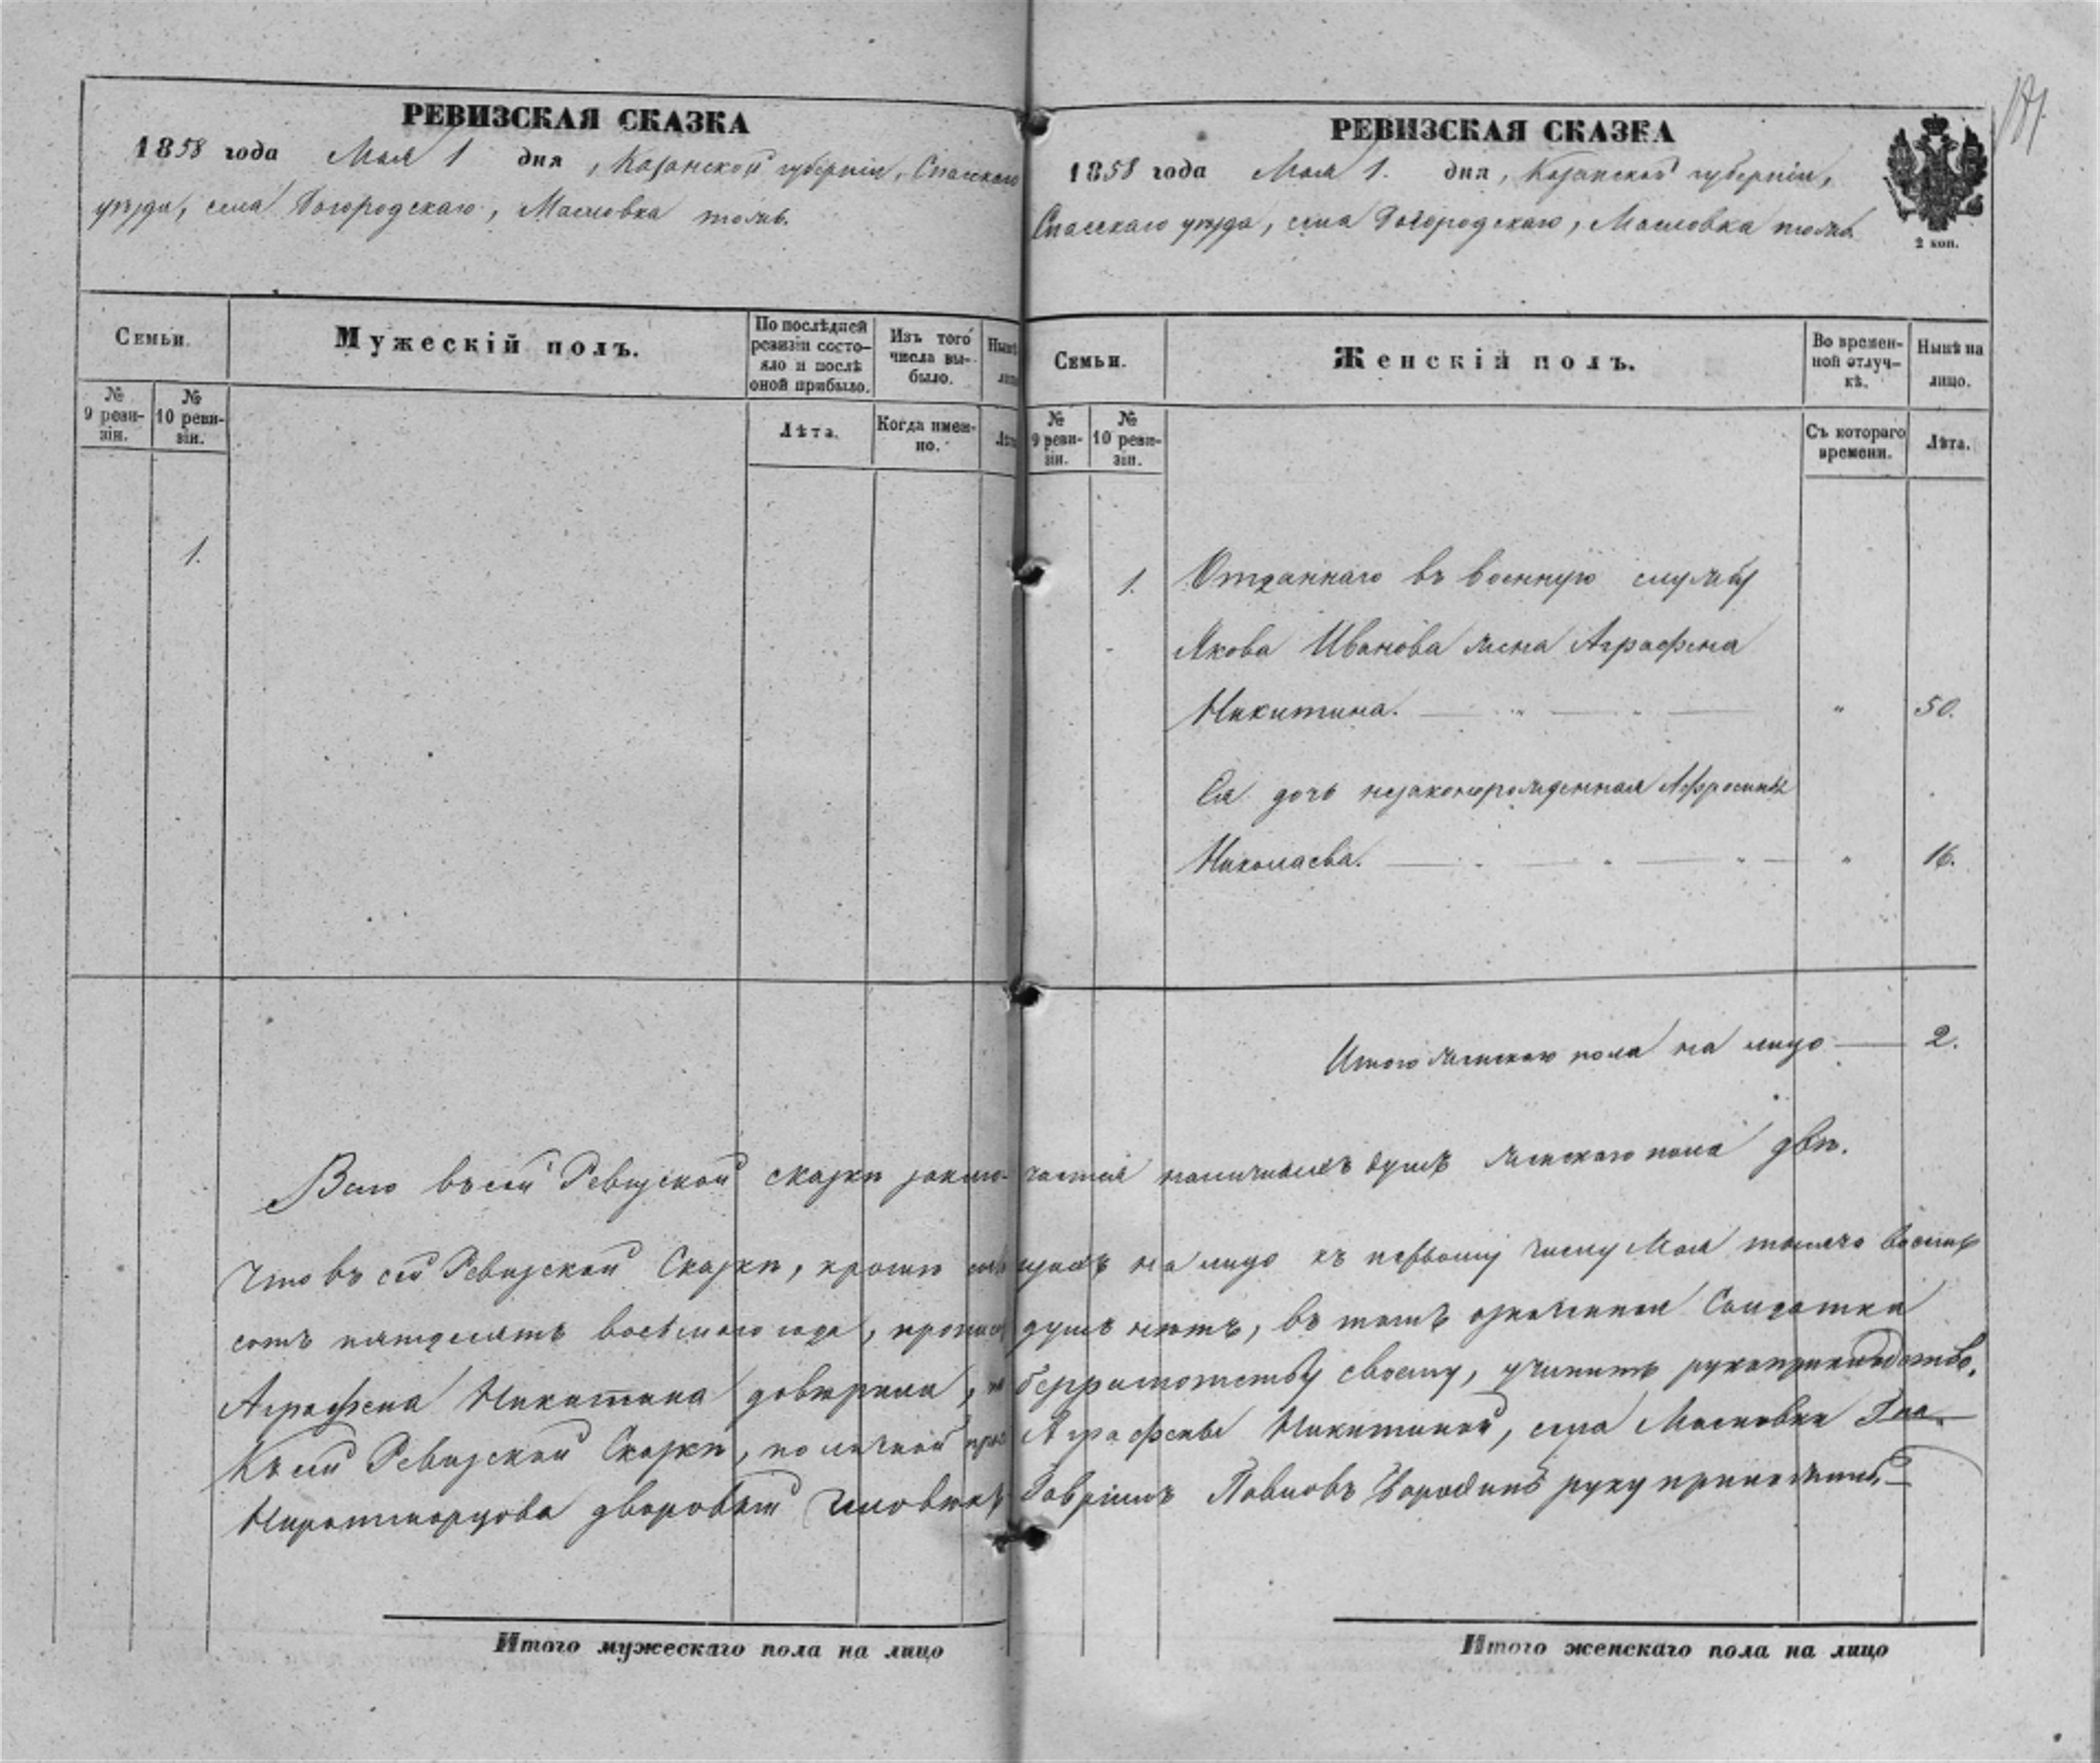 РЕВИЗСКАЯ СКАЗКА
1858 года Мая 1 дня, Казанской губерніи, Спасскаго
уѣзда, села Богородскаго, Масловка тожъ.
Семьи.
Мужескій полъ.
По послѣдней ревизіи состо-
яло и послѣ оной прибыло.
Изъ того числа вы-
было.
Нынѣ
№ 9 реви-
зіи.
№ 10 реви-
зіи.
Лѣта.
Когда имен-
но.
1.
РЕВИЗСКАЯ СКАЗКА
1858 года Мая 1. дня, Казанской губерніи,
Спасскаго уѣзда, села Богородскаго, Масловка тожъ
2 коп.
Семьи.
Женскій полъ.
Во времен-
ной отлуч-
кѣ.
Нынѣ на лицо.
№ 9 реви-
зіи.
№ 10 реви-
зіи.
Съ котораго времени.
Лѣта.
1. Отданнаго въ военную службу
Якова Иванова жена Аграфена
Никитина. — " — " — " 50.
Ея дочь незаконнорожденная Афросинья
Николаева. — " — " — " 16.
Итого женскаго пола на лицо — 2.
Всего въ сей Ревизской сказкѣ заклю-чается наличныхъ душъ женскаго пола двѣ.
Что въ сей Ревизской Сказкѣ, кромѣ на лицо къ первому числу Мая тысяча восемь
сотъ пятдесятъ восьмаго года, душъ нѣтъ, въ томъ означенная Солдатка
Аграфена Никитина довѣрила, безграмотству своему, учинить рукоприкладство.
Къ сей Ревизской Сказкѣ, по личной Аграфены Никитиной, села Масловки
дворовый человѣкъ Гавріилъ Павловъ руку приложилъ.—
Итого мужескаго пола на лицо
Итого женскаго пола на лицо